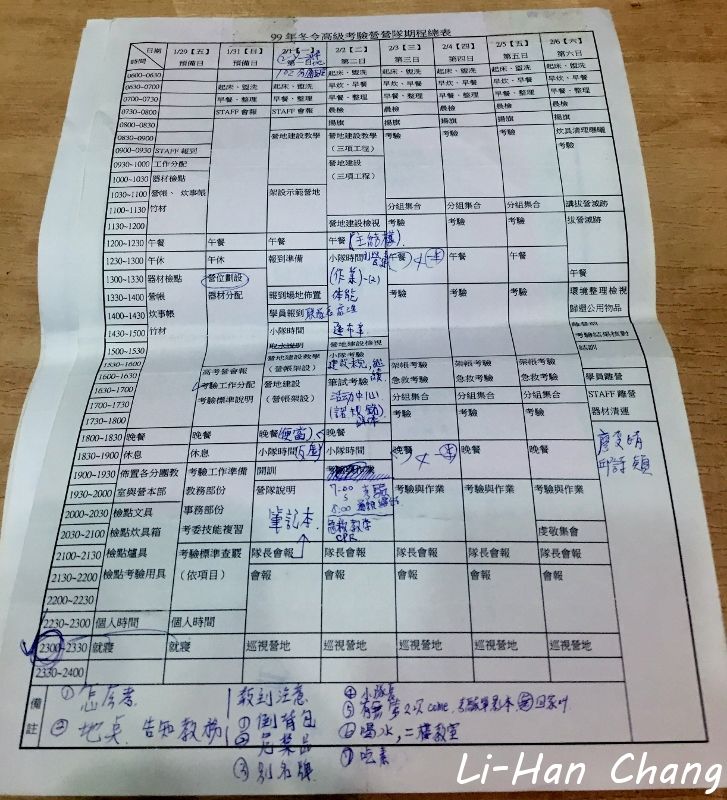 99年冬令高級考驗營營隊期程總表
日期 1/29【五】 1/31【日】 2/1【一】 2/2【二】 2/3【三】 2/4【四】 2/5【五】 2/6【六】
時間 預備日 預備日 第一日 第二日 第三日 第四日 第五日 第六日
0600~0630 起床、盥洗 起床、盥洗 起床、盥洗 起床、盥洗 起床、盥洗
0630~0700 起床、盥洗 起床、盥洗 早炊、早餐 早炊、早餐 早炊、早餐 早炊、早餐 早炊、早餐
0700~0730 早餐、整理 早餐、整理 早餐、整理 早餐、整理 早餐、整理 早餐、整理 早餐、整理
0730~0800 STAFF 會報 STAFF 會報 晨檢 晨檢 晨檢 晨檢 晨檢
0800~0830 揚旗 揚旗 揚旗 揚旗 揚旗
0830~0900 營地建設教學 營地建設教學 考驗 考驗 考驗 炊具清理曬曬
0900~0930 STAFF 報到 (三項工程) 考驗
0930~1000 工作分配 營地建設
1000~1030 器材檢點 (三項工程)
1030~1100 營帳、炊事帳 架設示範營地
1100~1130 竹材 分組集合 分組集合 分組集合 講拔營滅跡
1130~1200 營地建設檢視 考驗 考驗 考驗 拔營滅跡
1200~1230 午餐 午餐 午餐 午餐
1230~1300 午休 午休 報到準備 小隊時間 午餐 午餐 午餐
1300~1330 器材檢點 營位劃設 (作業) 午餐
1330~1400 營帳 器材分配 報到場地佈置 体能 考驗 考驗 考驗 環境整理檢視
1400~1430 炊事帳 學員報到 歸還公用物品
1430~1500 竹材 小隊時間
1500~1530 取水說明 營地建設檢視 考驗結果核對
1530~1600 營地建設教學 小隊考驗 架帳考驗 架帳考驗 架帳考驗 結訓
1600~1630 高考營會報 (營帳架設) 急救考驗 急救考驗 急救考驗 學員離營
1630~1700 考驗工作分配 營地建設 筆試考驗
1700~1730 考驗標準說明 (營帳架設) 活动中心 分組集合 分組集合 分組集合 STAFF 離營
1730~1800 考驗 考驗 考驗 器材清運
1800~1830 晚餐 晚餐 晚餐 (便當) 晚餐
1830~1900 休息 休息 小隊時間 小隊時間 晚餐 晚餐 晚餐
1900~1930 佈置各分團教 考驗工作準備 開訓 考驗與作業
1930~2000 室與營本部 教務部份 營隊說明 7:00 考驗與作業 考驗與作業 考驗與作業
2000~2030 檢點文具 事務部份 筆記本 8:00
2030~2100 檢點炊具箱 考委技能複習 急救教学 CPR 虔敬集會
2100~2130 檢點爐具 考驗標準查覈 隊長會報 隊長會報 隊長會報 隊長會報 隊長會報
2130~2200 檢點考驗用具 (依項目) 會報 會報 會報 會報 會報
2200~2230
2230~2300 個人時間 個人時間
2300~2330 就寢 就寢 巡視營地 巡視營地 巡視營地 巡視營地 巡視營地
2330~2400
備註
報到注意
① 倒背包
③ 別名牌
② 地桌 告知教務
④ 小隊長
⑥ 喝水,二樓教室
⑦ 吃素
Li-Han Chang